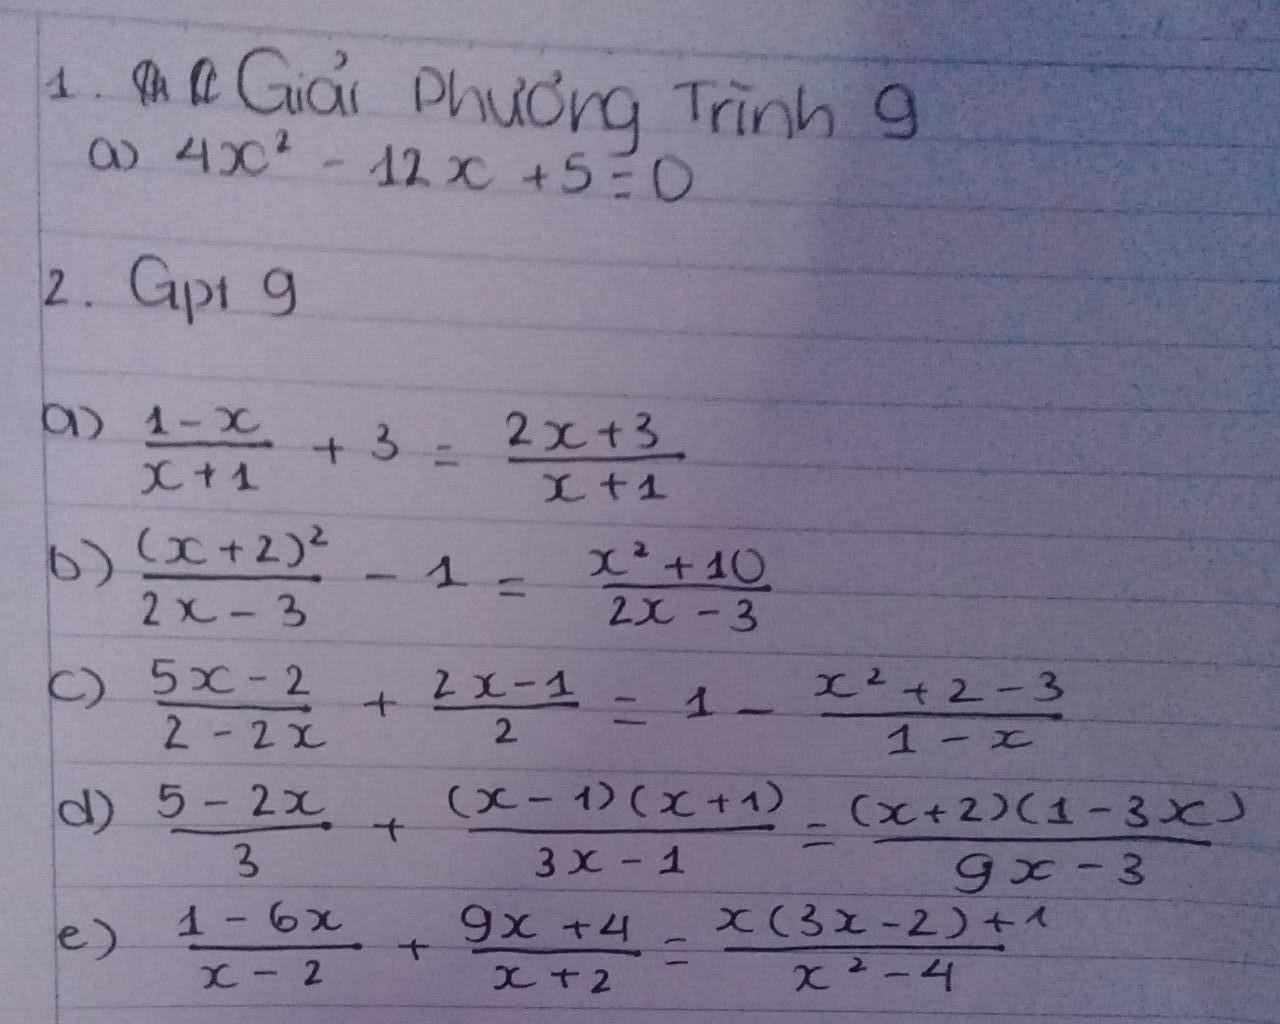 1. Giải Phương Trình 9
a) 4x² - 12x + 5 = 0
2. Gpt 9
a) (1-x)/(x+1) + 3 = (2x+3)/(x+1)
b) (x+2)²/(2x-3) - 1 = (x²+10)/(2x-3)
c) (5x-2)/(2-2x) + (2x-1)/2 = 1 - (x²+2-3)/(1-x)
d) (5-2x)/3 + (x-1)(x+1)/(3x-1) = (x+2)(1-3x)/(9x-3)
e) (1-6x)/(x-2) + (9x+4)/(x+2) = (x(3x-2)+1)/(x²-4)